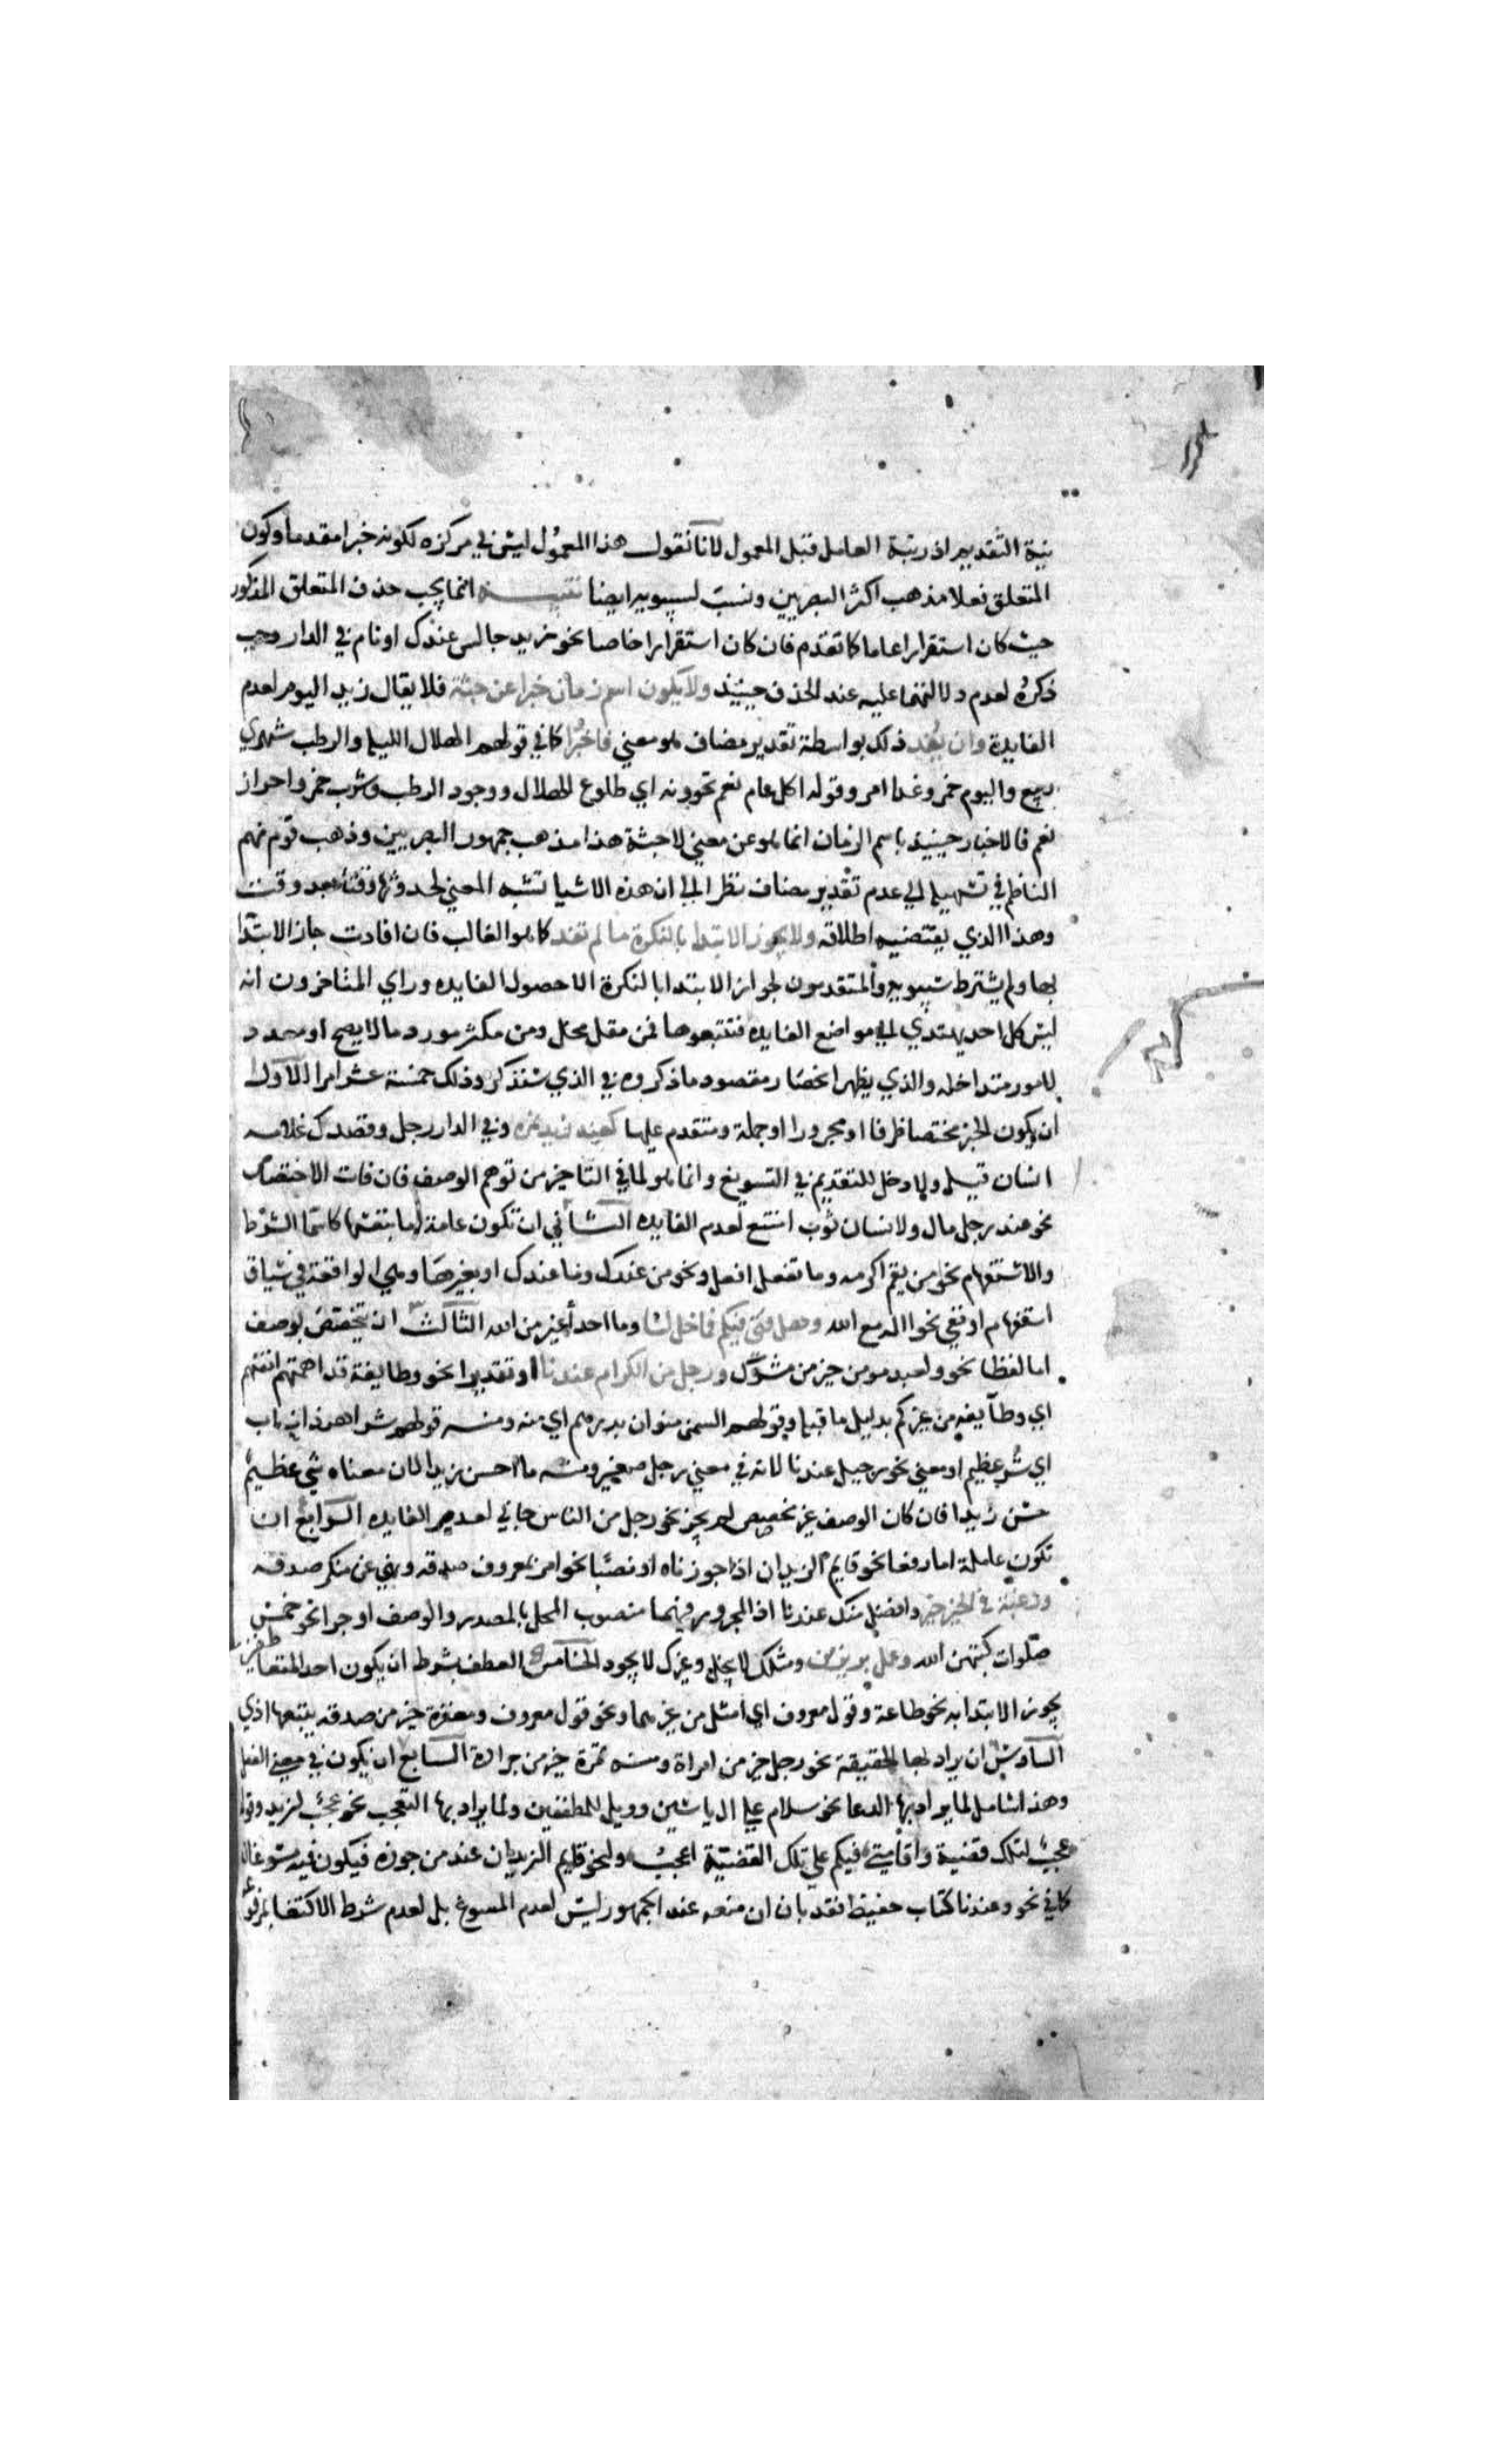 نية التقديم اذ رتبة العامل قبل المعمول لانا نقول هذا المعمول ليس في مركزه لكونه خبرا مقدما وكون
المتعلق فعلا مذهب اكثر البصريين ونسب لسيبويه ايضا تنبيه انما يجب حذف المتعلق المذكور
حيث كان استقرارا عاما كما تقدم فان كان استقرارا خاصا نحو زيد جالس عندك او نام في الدار وجب
ذكره لعدم دلالتهما عليه عند الحذف حينيذ ولا يكون اسم زمان خبرا عن جثة فلا يقال زيد اليوم لعدم
الفايدة وان يفد ذلك بواسطة تقدير مضاف هو معني فاخبرا كما في قولهم الهلال الليلة والرطب شهري
ربيع واليوم خمر وغدا امر وقوله اكل عام نعم تحوونه اي طلوع الهلال ووجود الرطب وشرب خمر واحراز
نعم فالاخبار حينيذ باسم الزمان انما هو عن معني لا جثة هذا مذهب جمهور البصريين وذهب قوم منهم
الناظم في تسهيله الي عدم تقدير مضاف نظرا الي ان هذه الاشيا تشبه المعني لحدوثها وقتا بعد وقت
وهذا الذي يقتضيه اطلاقه ولا يجوز الابتدا بالنكرة ما لم تفد كما هو الغالب فان افادت جاز الابتدا
بها ولم يشترط سيبويه والمتقدمون لجواز الابتدا بالنكرة الا حصول الفايده وراي المتاخرون انه
ليس كل احد يهتدي الي مواضع الفايده فتتبعوها فمن مقل مخل ومن مكثر مورد ما لا يصح او معدد
لامور متداخله والذي يظهر انحصار مقصود ما ذكروه في الذي سنذكر وذلك خمسة عشر امرا الاول
ان يكون الخبر مختصا ظرفا او مجرورا او جملة ومتقدم عليها كعند زيد نمره وفي الدار رجل وقصدك غلامه
انسان قيل ولا دخل للتقديم في التسويغ وانما هو لما في التاخير من توهم الوصف فان فات الاختصاص
نحو عند رجل مال ولانسان ثوب امتنع لعدم الفايده الثاني ان تكون عامة اما بنفسها كاسما الشرط
والاستفهام نحو من يقم اكرمه وما تفعل افعل ونحو من عندك وما عندك او بغيرها وهي الواقعة في سياق
استفهام او نفي نحو االه مع الله وهل فتي فيكم فما خل لنا وما احد أغير من الله الثالث ان تخصص بوصف
اما لفظا نحو ولعبد مومن خير من مشرك ورجل من الكرام عندنا او تقديرا نحو وطايفة قد اهمتهم انفسهم
اي وطآيفه من غيركم بدليل ما قبله وقولهم السمن منوان بدرهم اي منه ومنه قولهم شر اهر ذا ناب
اي شر عظيم او معني نحو رجيل عندنا لانه في معني رجل صغير ومنه ما احسن زيدا لان معناه شي عظيم
حسن زيدا فان كان الوصف غير مخصص لم يجز نحو رجل من الناس جاني لعدم الفايده الرابع ان
تكون عاملة اما رفعا نحو قايم الزيدان اذا جوزناه او نصبا نحو امر بمعروف صدقه ونهي عن منكر صدقه
ورغبة في الخير خير وافضل منك عندنا اذ المجرور فيهما منصوب المحل بالمصدر والوصف او جرا نحو خمس
صلوات كتبهن الله وعمل بر يزين ومثلك لا يبخل وغيرك لا يجود الخامس العطف بشرط ان يكون احد المتعاطفين
يجوز الابتدا به نحو طاعة وقول معروف اي امثل من غيرهما ونحو قول معروف ومغفرة خير من صدقه يتبعها اذي
السادس ان يراد بها الحقيقة نحو رجل خير من امراة ومنه تمرة خير من جرادة السابع ان يكون في معني الفعل
وهذا شامل لما يراد بها الدعا نحو سلام علي ال ياسين وويل للمطففين ولما يراد بها التعجب نحو عجب لزيد وقوله
عجب لتلك قضية واقامتي فيكم علي تلك القضية اعجب ولنحو قايم الزيدان عند من جوزه فيكون فيه مسوغان
كما في نحو وعندنا كتاب حفيظ فقد بان ان منعه عند الجمهور ليس لعدم المسوغ بل لعدم شرط الاكتفا بمرفوعه